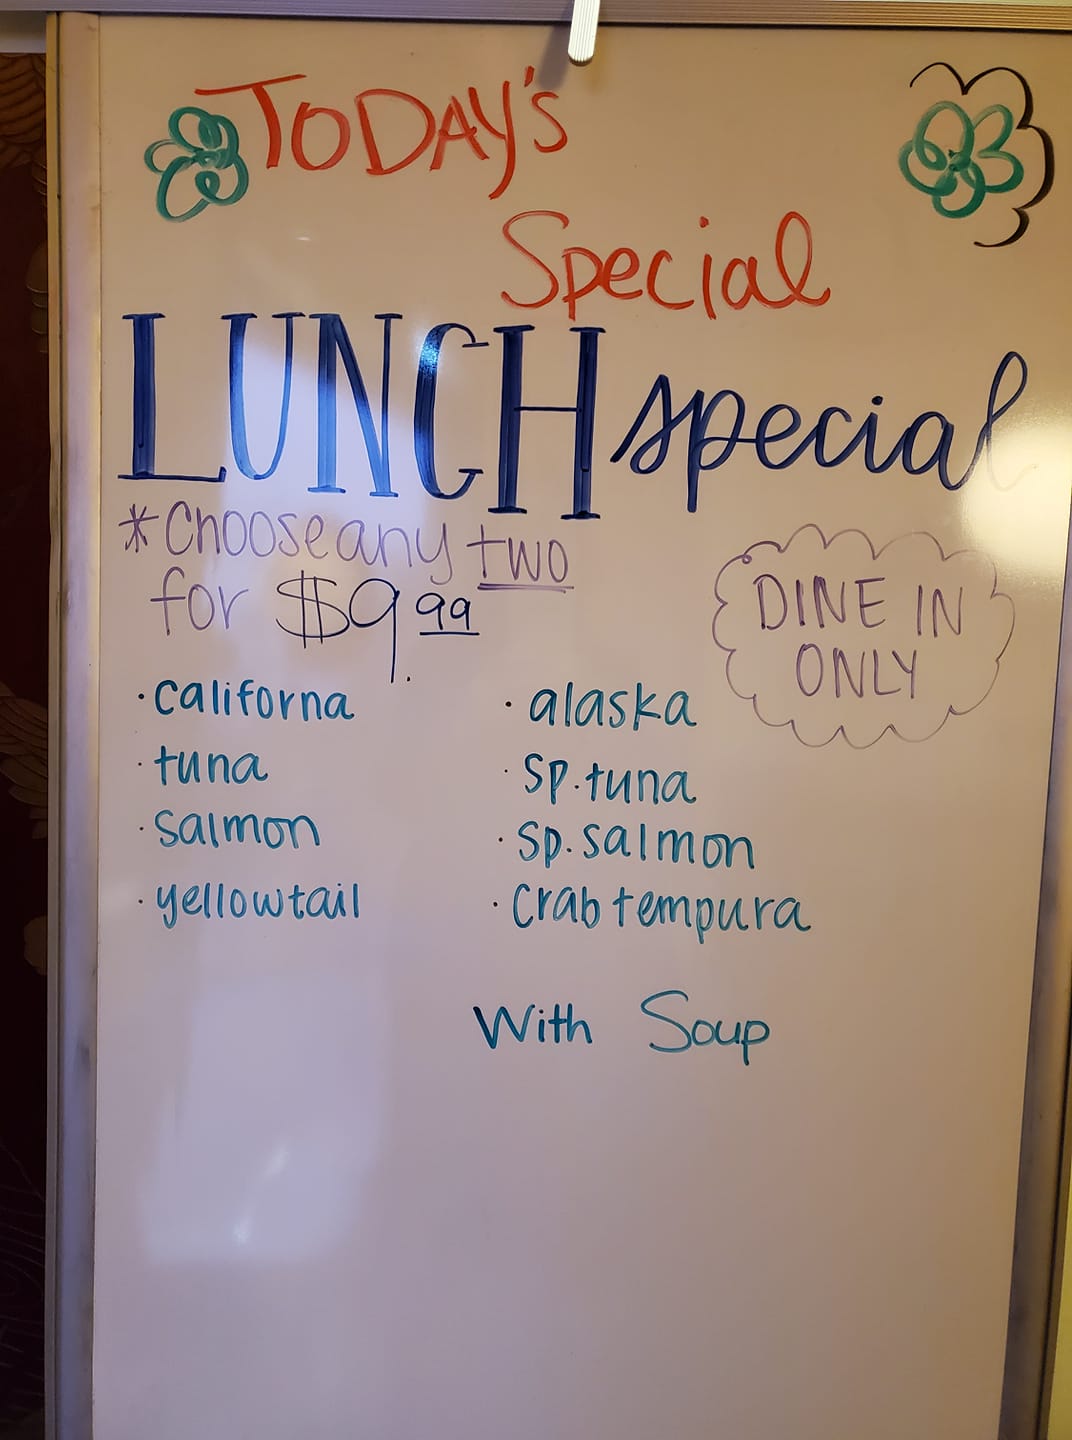 TODAY's
Special
LUNCH special
*Choose any two
for $9.99
DINE IN
ONLY
· californa
· tuna
· salmon
· yellowtail
· alaska
· sp. tuna
· sp. salmon
· crab tempura
With Soup